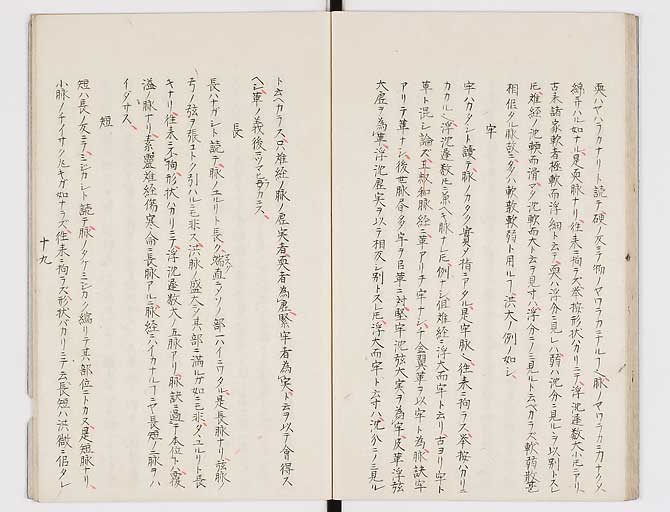 耎ハヤハラカナリト読テ硬ノ反ニテ物ノヤワラカニナルナリ脉ノヤワラカニカナクシ
綿ヲハル如ナル是耎脉ナリ往来ニ拘ラス挙按形状バカリニテ浮沈遅数大小ニアリ
古来諸家軟者極軟而浮細ト云テ耎ハ浮分ニ見レハ弱ハ沈分ニ見ルヲ以別トスレ
𪜈難経ノ沈軟而滑マタ沈軟而大ト云ヲ見寸ハ浮分ニノミ見ルト云ベカラス軟弱散甚
相似タル脉故ニ多ハ軟散軟弱ト用ルフ洪大ノ例ノ如シ
牢
牢ハカタシト読テ脉ノカタク実ヲ指ニアタル是牢脉ナリ往来ニ拘ラス挙按バカリニ
カカル浮沈遅数𪜈ニ兼ベキ脉ナレ𪜈例ナシ但難経ニ浮大而牢ト云リ古ヨリ牢ト
革ト混シ論ズ王叔和脉経ニ革アリテ牢ナシ千金翼革ヲ以牢ト為脉訣牢
アリテ革ナシ後世脉各多牢ヲ
大虚ヲ為革浮沈虚実ヲ以テ相反シ別トスレ𪜈浮大而牢ト云寸ハ沈分ニノミ見ル
ト云ベカラス只難経ノ脉ノ虚実者耎者為虚緊牢者為実ト云ヲ以テ會得ス
ベシ革ノ義後ニツマビラカニス
長
長ハナガシト読テ脉ノユルリト長ク端直ニシテソノ部一ハイニワタル是長脉ナリ弦脉ノ
弓ノ弦ヲ張コトク引ハルニモ非ス洪脉ノ盛大ニテ其部ニ満ルガ如ニモ非タヽユルリト長
キナリ往来ニ不拘形状バカリニテ浮沈遅数大小五脉アリ脉訣ニ過于本位ト云ハ覆
溢ノ脉ナリ素霊難経傷寒命ニ長脉アルニ脉経ニハイカナルフニヤ長短ノ二脉ヲハ
イダサス
短
短ハ長ノ反ニテミジカシト読テ脉ノタケミジカク縮リテ其部位ニトヾカヌ是短脉ナリ
小脉ノチイサク𪜈キガ如ナラズ往来ニ拘ラズ形状バカリニテ云長短ハ洪微ニ似タレ
十九